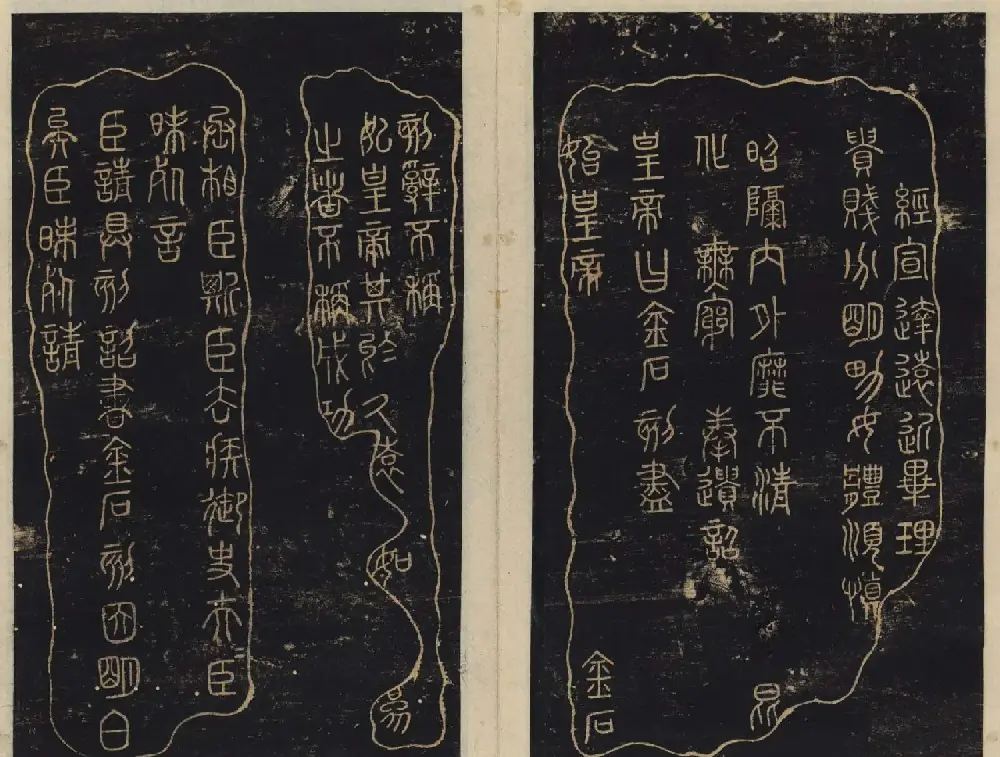 經宣達遠近畢理
貴賤分明男女體順慎
昭隔內外靡不清 昆
化無窮奉遺詔
皇帝曰金石刻盡
始皇帝 金石
刻辭不稱
始皇帝其於久遠 如
之者不稱成功
丞相臣斯臣去疾御史夫臣
昧死言
臣請具刻詔書金石刻因明白
矣臣昧死請